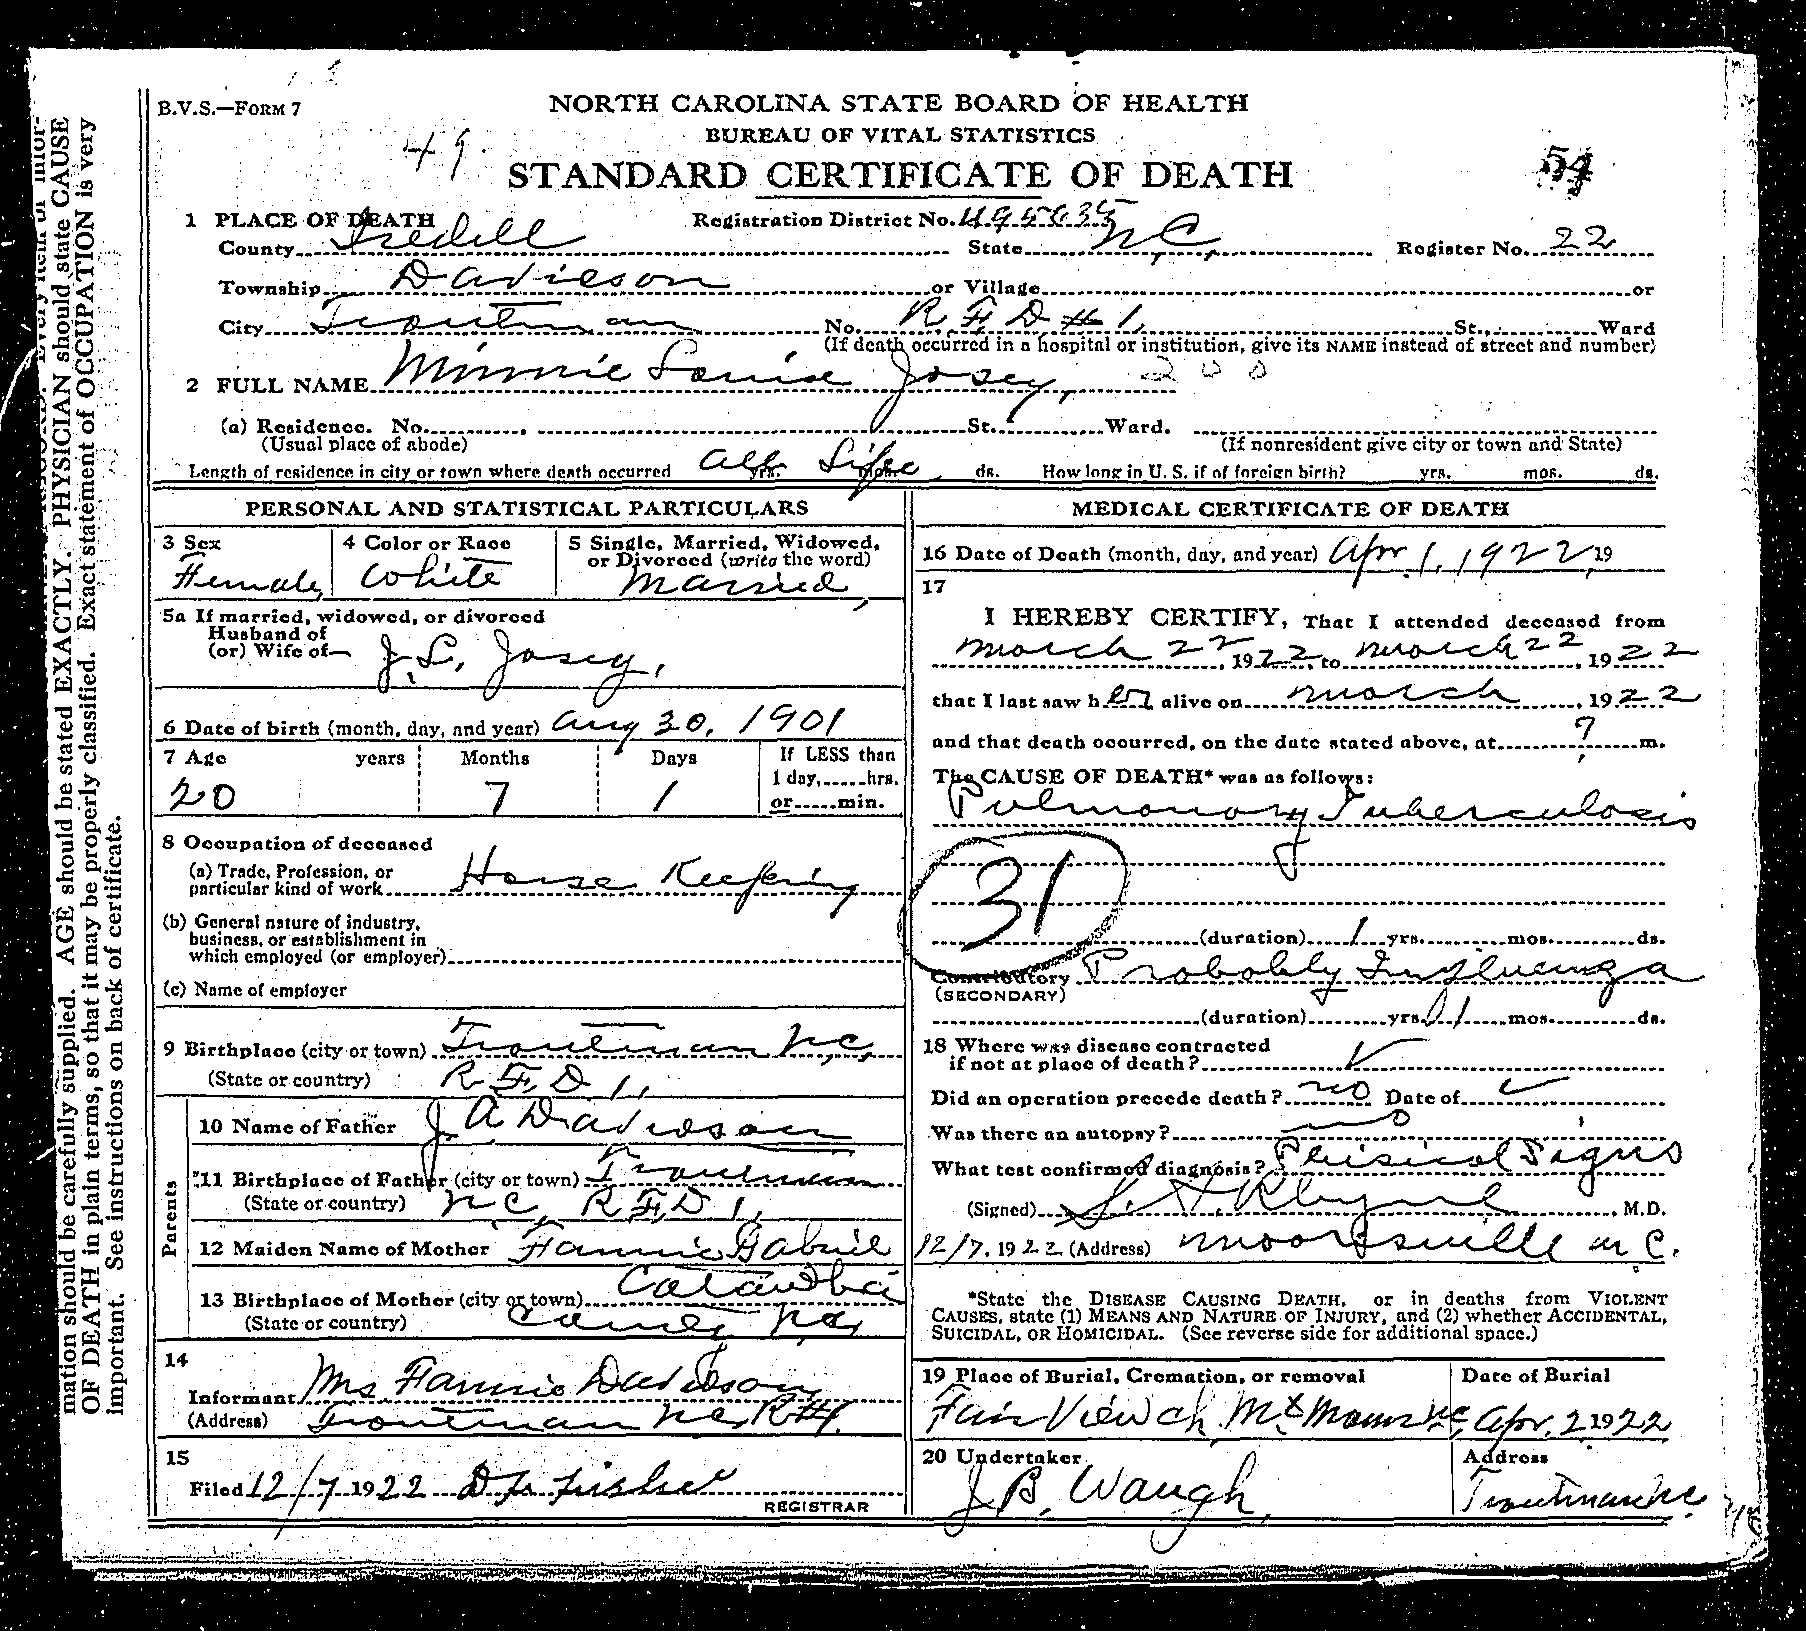 B.V.S.—FORM 7
NORTH CAROLINA STATE BOARD OF HEALTH
BUREAU OF VITAL STATISTICS
49
STANDARD CERTIFICATE OF DEATH
54
1 PLACE OF DEATH Registration District No. 495635
County Iredell State N.C. Register No. 22
Township Davidson or Village or
City Troutman No. R.F.D #1 St., Ward
(If death occurred in a hospital or institution, give its NAME instead of street and number)
2 FULL NAME Minnie Louise Josey, 200
(a) Residence. No. St. Ward.
(Usual place of abode) (If nonresident give city or town and State)
Length of residence in city or town where death occurred All yrs. Life mos. ds. How long in U. S. if of foreign birth? yrs. mos. ds.
PERSONAL AND STATISTICAL PARTICULARS
3 Sex 4 Color or Race 5 Single, Married, Widowed,
or Divorced (write the word)
Female White Married,
5a If married, widowed, or divorced
Husband of
(or) Wife of— J.L. Josey,
6 Date of birth (month, day, and year) Aug 30, 1901
7 Age years Months Days If LESS than
1 day, hrs.
20 7 1 or min.
8 Occupation of deceased
(a) Trade, Profession, or
particular kind of work House Keeping
(b) General nature of industry,
business, or establishment in
which employed (or employer)
(c) Name of employer
9 Birthplace (city or town) Troutman N.C.
(State or country) R.F.D 1,
Parents
10 Name of Father J A Davidson
11 Birthplace of Father (city or town) Troutman
(State or country) N C, R.F.D 1,
12 Maiden Name of Mother Fannie Gabriel
13 Birthplace of Mother (city or town) Catawba
(State or country) County N.C,
14
Informant Mrs Fannie Davidson
(Address) Troutman N.C. R#1.
15
Filed 12/7 1922 REGISTRAR
MEDICAL CERTIFICATE OF DEATH
16 Date of Death (month, day, and year) Apr. 1, 1922, 19
17
I HEREBY CERTIFY, That I attended deceased from
March 22, 1922, to March 22, 1922
that I last saw her alive on March, 1922
and that death occurred, on the date stated above, at ? m.
The CAUSE OF DEATH* was as follows:
Pulmonary Tuberculosis
31
(duration) 1 yrs. mos. ds.
Contributory Probably Influenza
(SECONDARY)
(duration) yrs. 1 mos. ds.
18 Where was disease contracted
if not at place of death?
Did an operation precede death? no Date of
Was there an autopsy? no
What test confirmed diagnosis? Phisical Signs
(Signed) S. A. Rhyne, M.D.
12/7, 1922 (Address) Mooresville N C.
*State the DISEASE CAUSING DEATH, or in deaths from VIOLENT
CAUSES, state (1) MEANS AND NATURE OF INJURY, and (2) whether ACCIDENTAL,
SUICIDAL, OR HOMICIDAL. (See reverse side for additional space.)
19 Place of Burial, Cremation, or removal Date of Burial
Fair View Ch, Mt Mourne, Apr. 2 1922
20 Undertaker Address
J B, Waugh, Troutman N.C.
mation should be carefully supplied. AGE should be stated EXACTLY. PHYSICIAN should state CAUSE
OF DEATH in plain terms, so that it may be properly classified. Exact statement of OCCUPATION is very
important. See instructions on back of certificate.